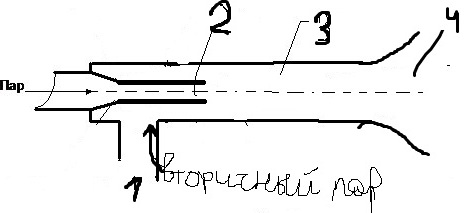 2
3
4
Пар
1
вторичный пар